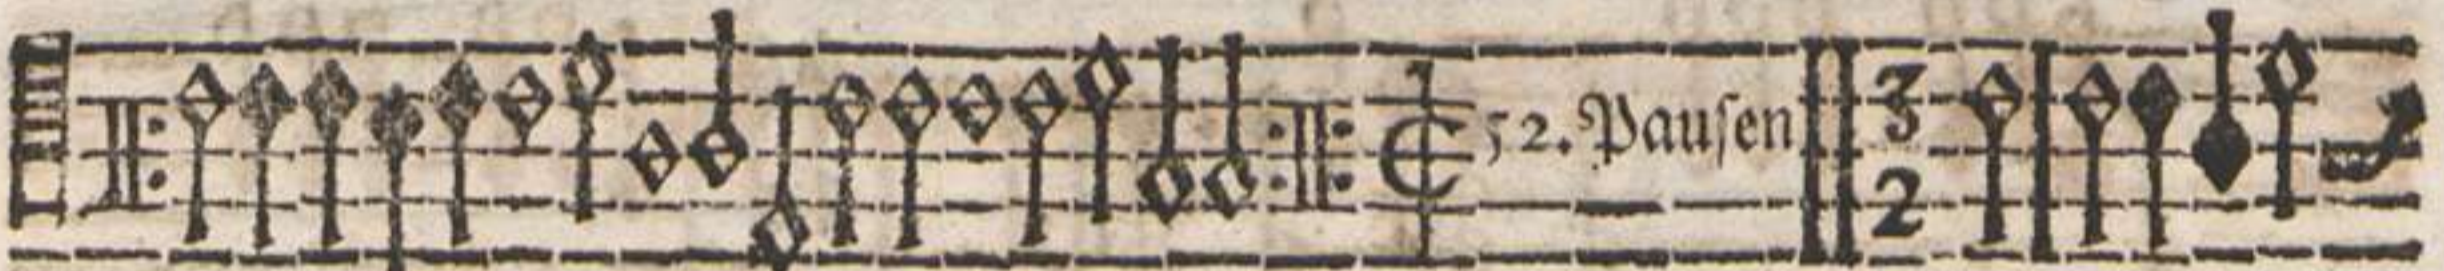 52. Pauſen 3
2